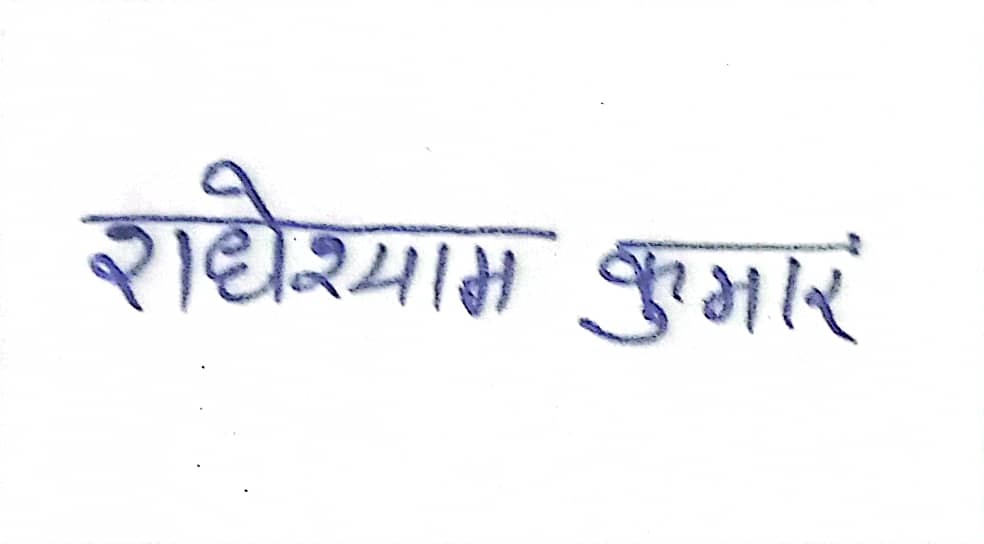 राधेश्याम कुमार